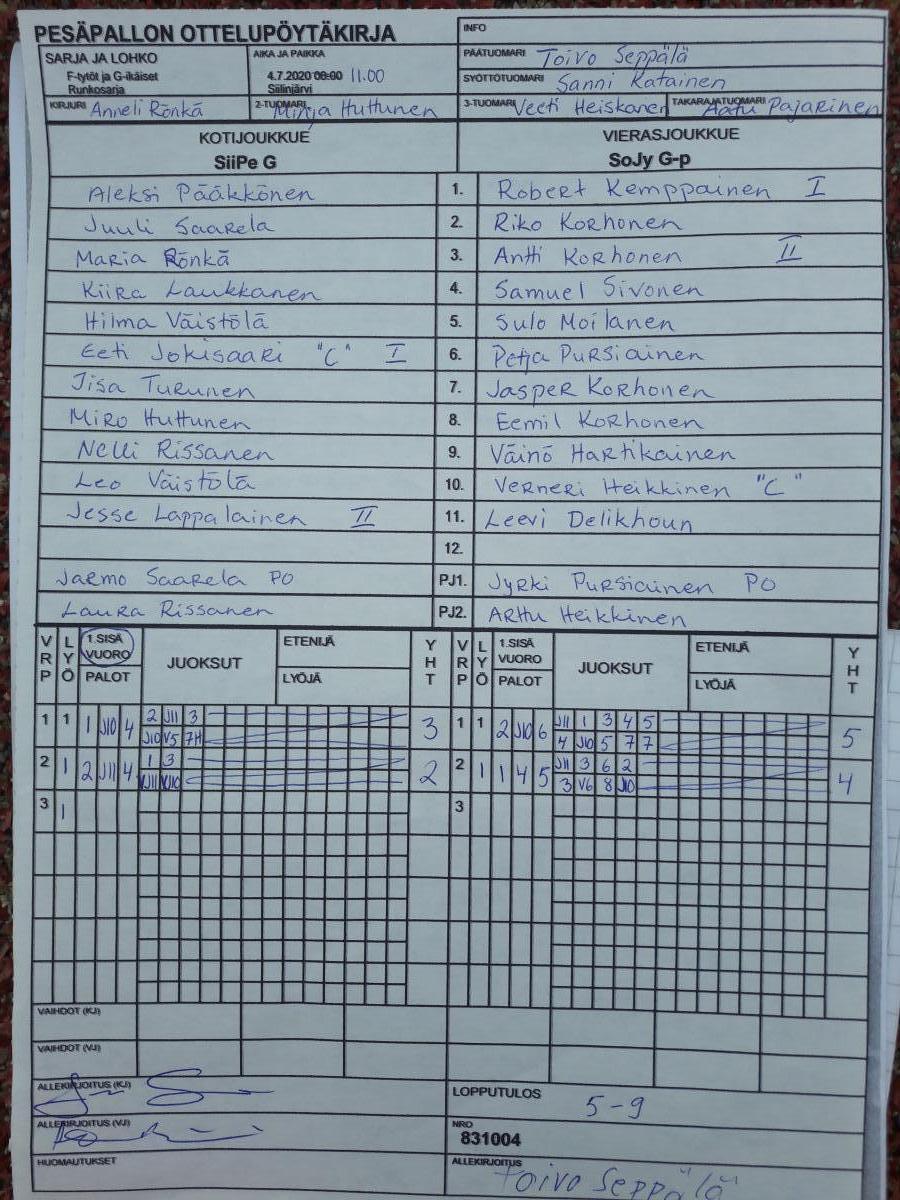 PESÄPALLON OTTELUPÖYTÄKIRJA
INFO
SARJA JA LOHKO
F-tytöt ja G-ikäiset
Runkosarja
AIKA JA PAIKKA
4.7.2020 00:00 11.00
Siilinjärvi
PÄÄTUOMARI Toivo Seppälä
SYÖTTÖTUOMARI Sanni Katainen
KIRJURI Anneli Rönkä
2-TUOMARI Minja Huttunen
3-TUOMARI Veeti Heiskanen
TAKARAJATUOMARI Aatu Pajarinen
KOTIJOUKKUE
SiiPe G
VIERASJOUKKUE
SoJy G-p
Aleksi Pääkkönen 1. Robert Kemppainen I
Juuli Saarela 2. Riko Korhonen
Maria Rönkä 3. Antti Korhonen II
Kiira Laukkanen 4. Samuel Sivonen
Hilma Väistölä 5. Sulo Moilanen
Eeti Jokisaari "C" I 6. Petja Pursiainen
Iisa Turunen 7. Jasper Korhonen
Miro Huttunen 8. Eemil Korhonen
Nelli Rissanen 9. Väinö Hartikainen
Leo Väistölä 10. Verneri Heikkinen "C"
Jesse Lappalainen II 11. Leevi Delikhoun
12.
Jarmo Saarela PO PJ1. Jyrki Pursiainen PO
Laura Rissanen PJ2. Arttu Heikkinen
VRP LYÖ 1.SISÄ VUORO PALOT JUOKSUT ETENIJÄ LYÖJÄ YHT VRP LYÖ 1.SISÄ VUORO PALOT JUOKSUT ETENIJÄ LYÖJÄ YHT
1 1 1 J10 4 2 J11 3 3 1 1 2 J10 6 J11 1 3 4 5 5
J10 V5 7H 4 J10 5 7 7
2 1 2 J11 4 1 3 2 2 1 1 4 5 J11 3 6 2 4
VJ11 3 V6 8 J10
3 1 3
VAIHDOT (KJ)
VAIHDOT (VJ)
ALLEKIRJOITUS (KJ)
LOPPUTULOS
5-9
ALLEKIRJOITUS (VJ)
NRO
831004
HUOMAUTUKSET
ALLEKIRJOITUS
Toivo Seppälä